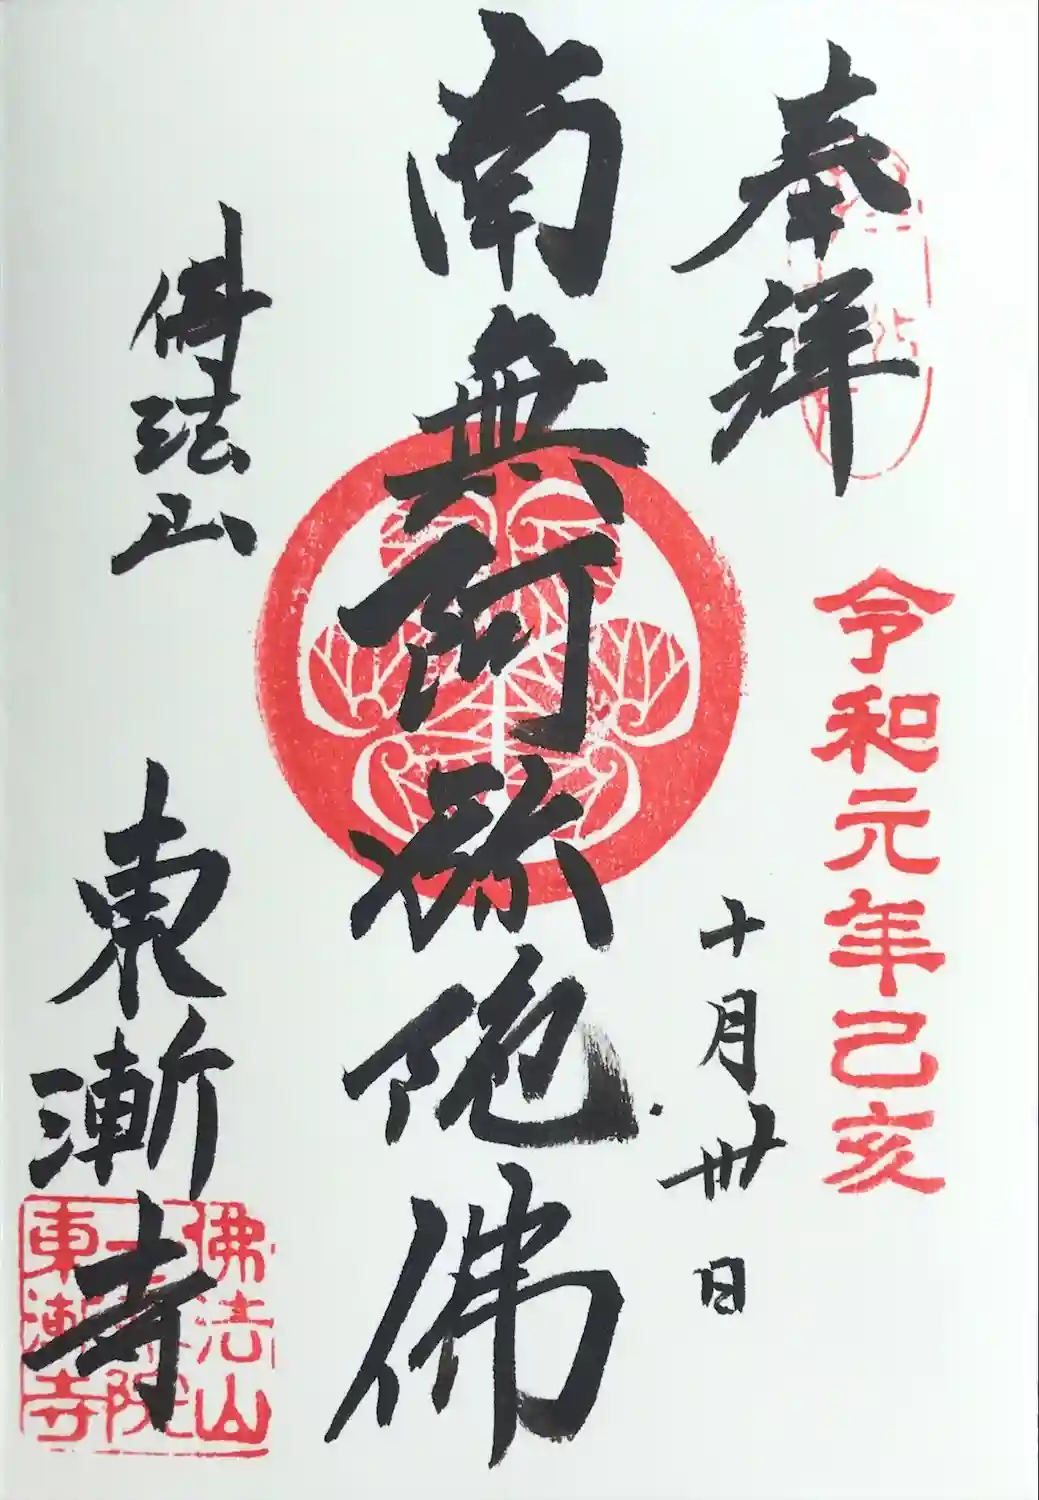 奉拝
令和元年己亥
十月卅日
南無阿弥陀佛
佛法山
東漸寺
佛法山
院
東漸寺